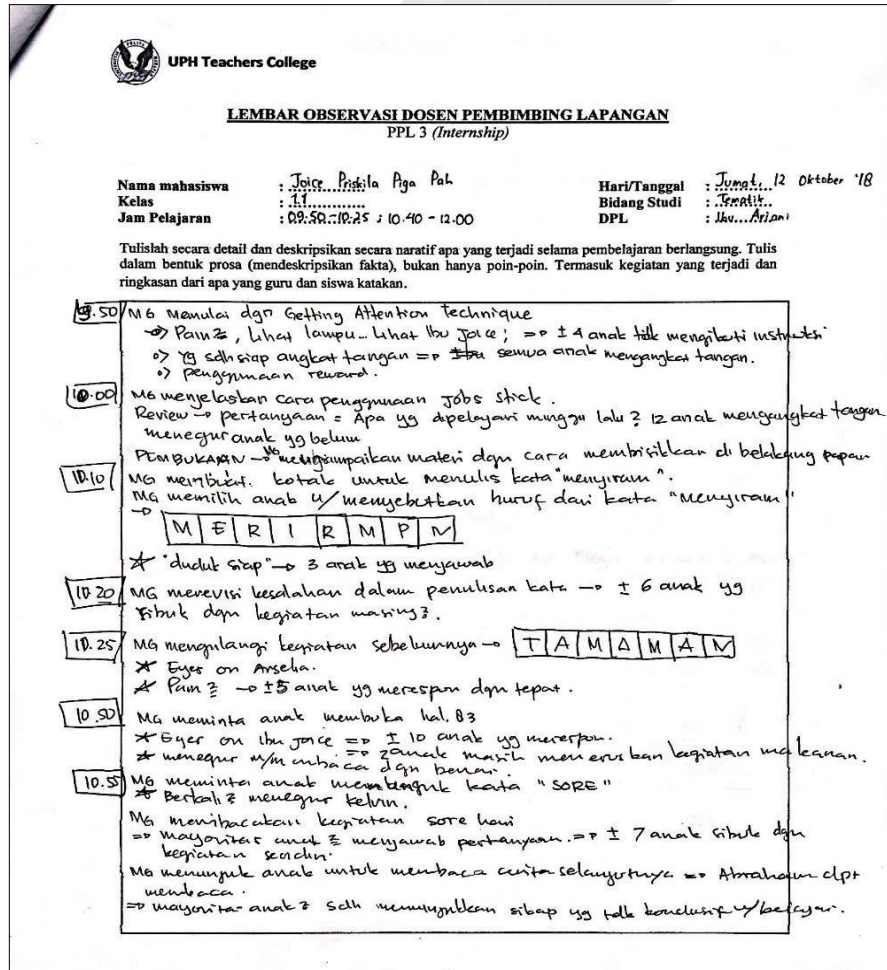 UPH Teachers College
LEMBAR OBSERVASI DOSEN PEMBIMBING LAPANGAN
PPL 3 (Internship)
Nama mahasiswa : Joice Priskila Piga Pah Hari/Tanggal : Jumat, 12 Oktober '18
Kelas : 1.1 Bidang Studi : Tematik
Jam Pelajaran : 09.50-10.25 ; 10.40 - 12.00 DPL : Ibu Ariani
Tulislah secara detail dan deskripsikan secara naratif apa yang terjadi selama pembelajaran berlangsung. Tulis
dalam bentuk prosa (mendeskripsikan fakta), bukan hanya poin-poin. Termasuk kegiatan yang terjadi dan
ringkasan dari apa yang guru dan siswa katakan.
09.50 MG Memulai dgn Getting Attention Technique
lihat lampu... lihat Ibu Joice; => ± 4 anak tdk mengikuti instruksi
yg sdh siap angkat tangan => semua anak mengangkat tangan.
penggunaan reward.
10.00 MG menjelaskan cara penggunaan Jobs stick.
Review → pertanyaan = Apa yg dipelajari minggu lalu ? 12 anak mengangkat tangan
menegur anak yg belum
PEMBUKAAN → MG menyampaikan materi dgn cara membisikkan di belakang papan
10.10 MG membuat kotak untuk menulis kata "menyiram".
MG memilih anak u/ menyebutkan huruf dari kata "Menyiram"
→ M E R I R M P N
* "duduk siap" → 3 anak yg menjawab
10.20 MG merevisi kesalahan dalam penulisan kata → ± 6 anak yg
sibuk dgn kegiatan masing2.
10.25 MG mengulangi kegiatan sebelumnya → T A M A M A N
* Eyes on Arselia.
* → ±5 anak yg merespon dgn tepat.
10.50 MG meminta anak membuka hal. 83
* Eyes on Ibu Joice => ± 10 anak yg merespon.
* menegur u/ membaca dgn benar. => 2 anak masih meneruskan kegiatan makanan.
10.55 MG meminta anak kata "SORE"
* Berkali2 menegur Kelvin.
MG membacakan kegiatan sore hari
=> mayoritas anak2 menjawab pertanyaan. => ± 7 anak sibuk dgn
kegiatan sendiri.
MG menunjuk anak untuk membaca cerita selanjutnya => Abraham dpt
membaca.
=> mayoritas anak2 sdh menunjukkan sikap yg tdk kondusif u/ belajar.